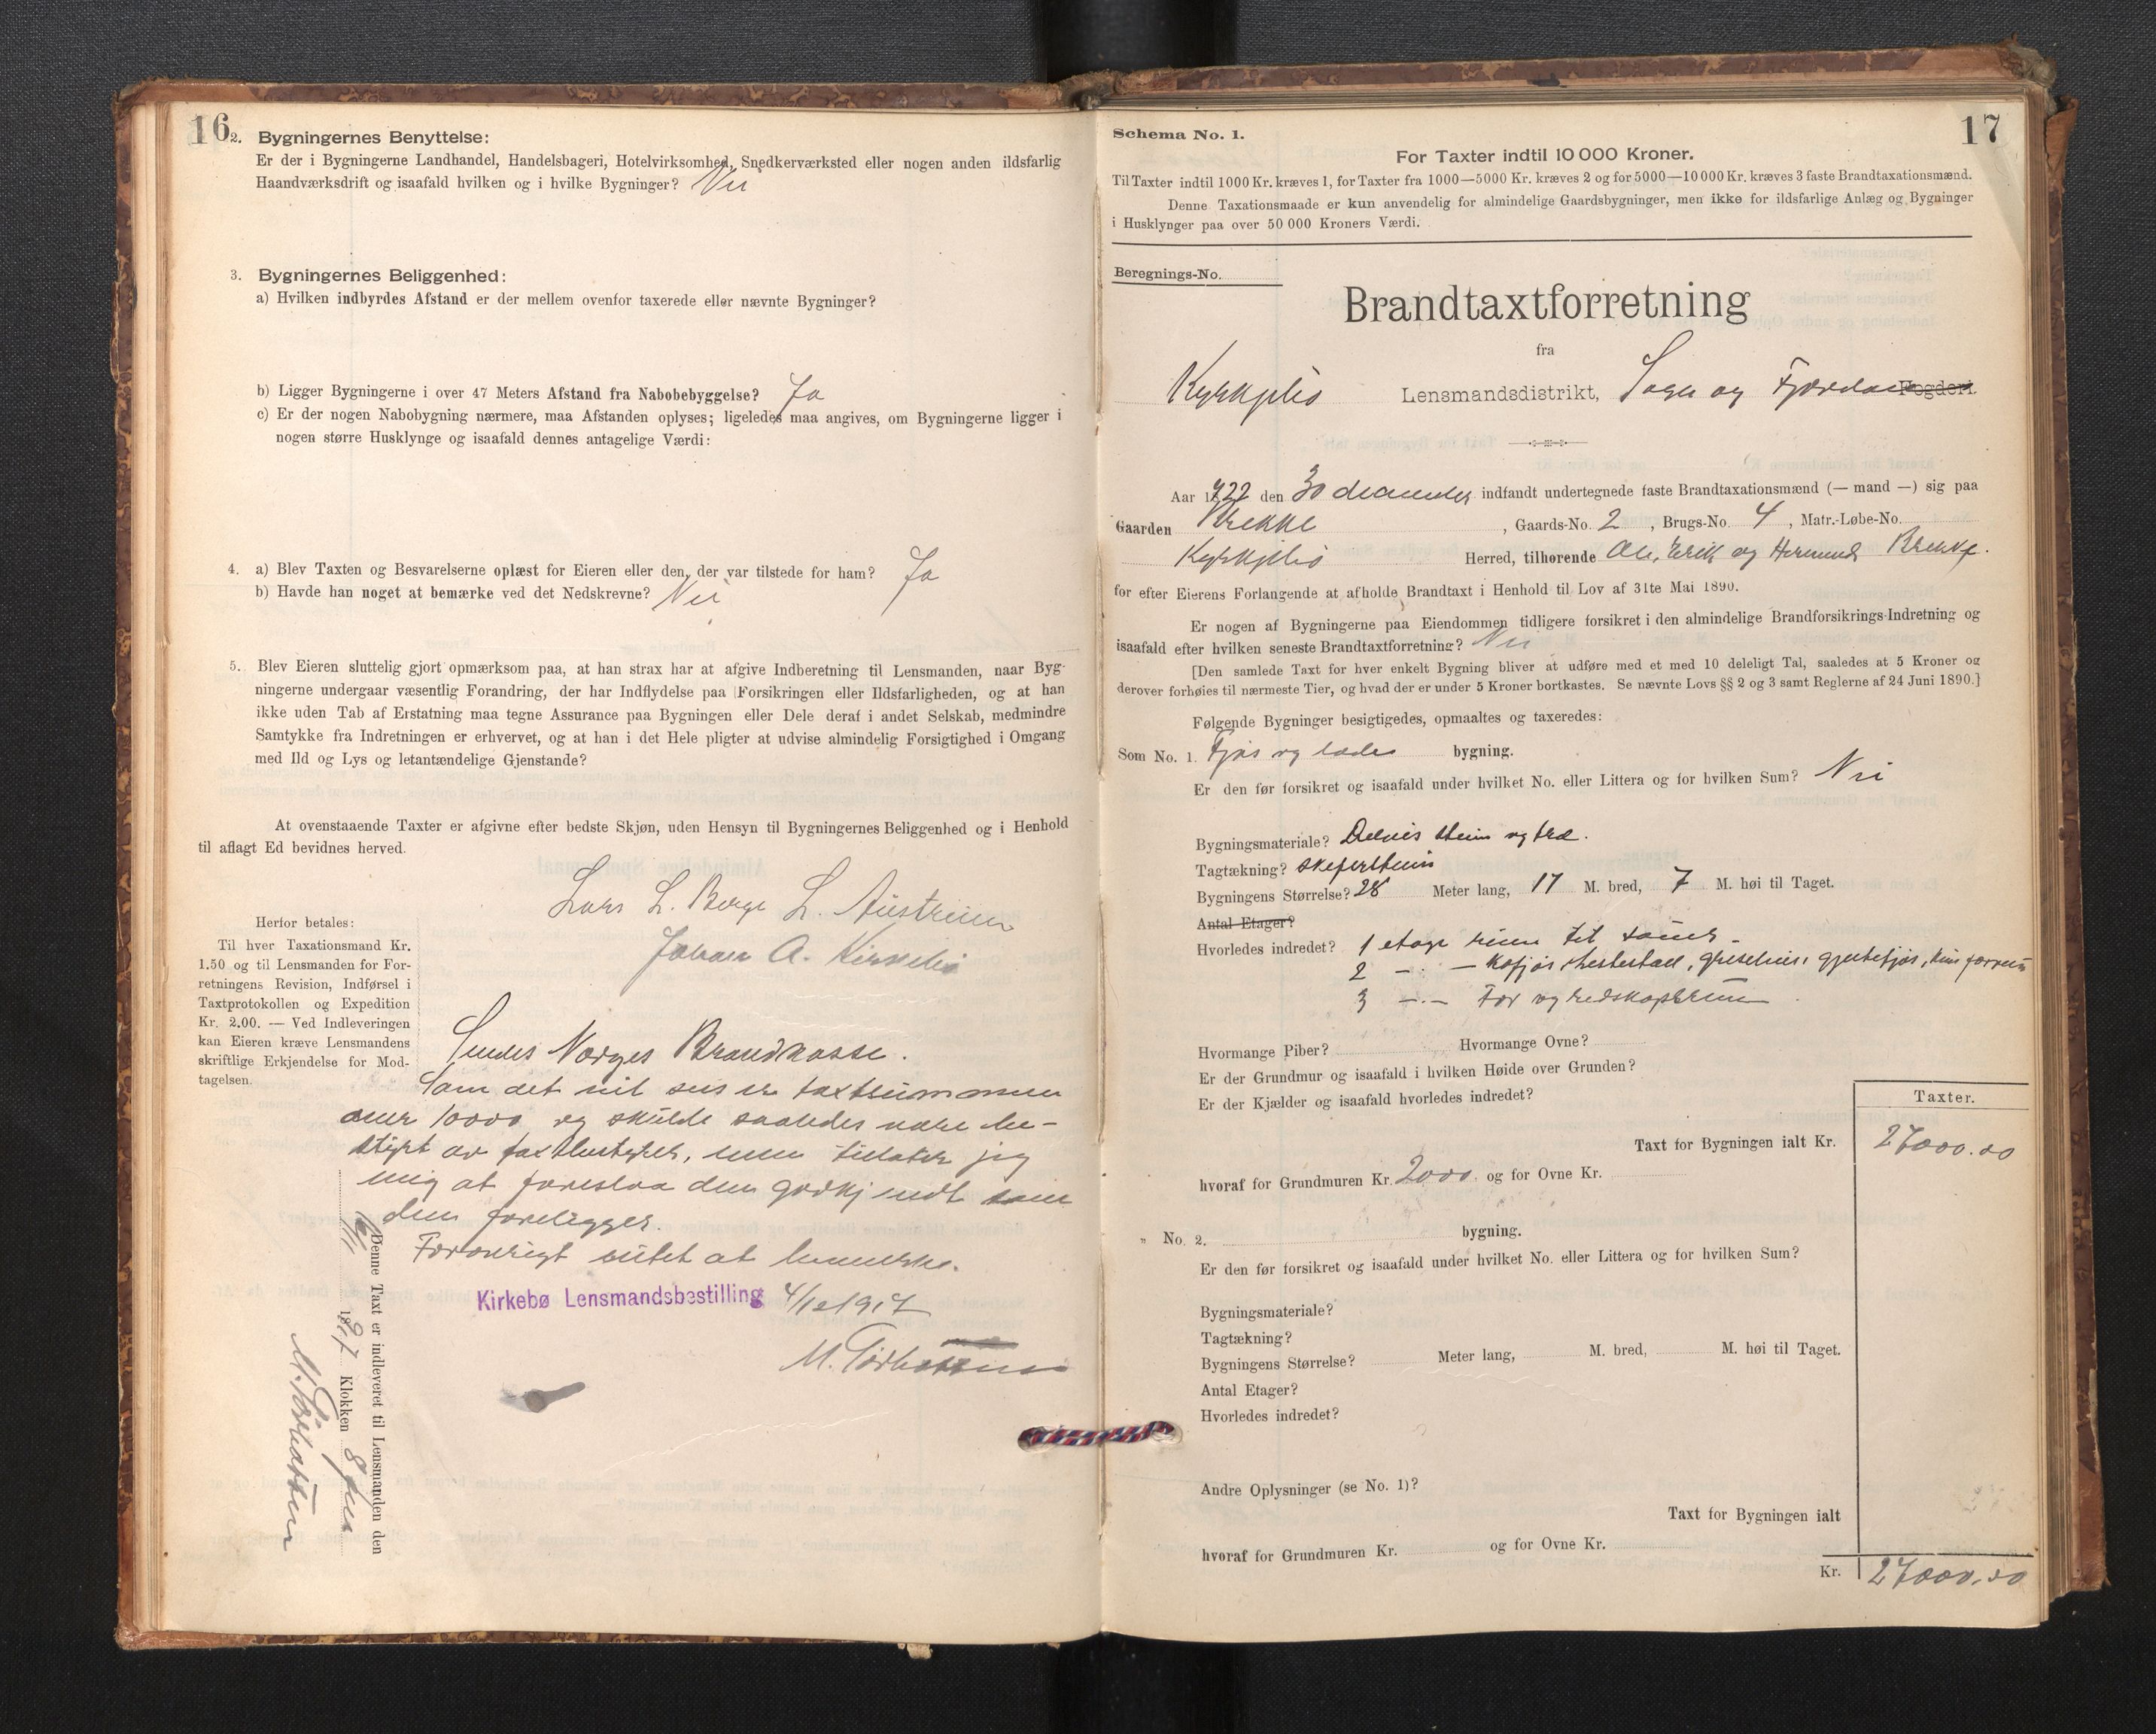 16
2. Bygningernes Benyttelse:
Er der i Bygningerne Landhandel, Handelsbageri, Hotelvirksomhed, Snedkerværksted eller nogen anden ildsfarlig
Haandværksdrift og isaafald hvilken og i hvilke Bygninger? Nei
3. Bygningernes Beliggenhed:
a) Hvilken indbyrdes Afstand er der mellem ovenfor taxerede eller nævnte Bygninger?
b) Ligger Bygningerne i over 47 Meters Afstand fra Nabobebyggelse? Ja
c) Er der nogen Nabobygning nærmere, maa Afstanden oplyses; ligeledes maa angives, om Bygningerne ligger i
nogen større Husklynge og isaafald dennes antagelige Værdi:
4. a) Blev Taxten og Besvarelserne oplæst for Eieren eller den, der var tilstede for ham? Ja
b) Havde han noget at bemærke ved det Nedskrevne? Nei
5. Blev Eieren sluttelig gjort opmærksom paa, at han strax har at afgive Indberetning til Lensmanden, naar Byg-
ningerne undergaar væsentlig Forandring, der har Indflydelse paa Forsikringen eller Ildsfarligheden, og at han
ikke uden Tab af Erstatning maa tegne Assurance paa Bygningen eller Dele deraf i andet Selskab, medmindre
Samtykke fra Indretningen er erhvervet, og at han i det Hele pligter at udvise almindelig Forsigtighed i Omgang
med Ild og Lys og letantændelige Gjenstande?
At ovenstaaende Taxter er afgivne efter bedste Skjøn, uden Hensyn til Bygningernes Beliggenhed og i Henhold
til aflagt Ed bevidnes herved.
Lars L. Berge L. Austreim
Johan A. Kirkebø
Herfor betales:
Til hver Taxationsmand Kr.
1.50 og til Lensmanden for For-
retningens Revision, Indførsel i
Taxtprotokollen og Expedition
Kr. 2.00. — Ved Indleveringen
kan Eieren kræve Lensmandens
skriftlige Erkjendelse for Mod-
tagelsen.
Sendes Norges Brandkasse.
Som det vil sees er taxtsummen
over 10000 og skulde saaledes være be-
styrt av taxtbestyrer, men tillater jeg
mig at foreslaa den godkjendt som
den foreligger.
Forøvrigt intet at bemerke.
Kirkebø Lensmandsbestilling 4/12 1917
M. Tørhatten
Denne Taxt er indleveret til Lensmanden den
Klokken 8
M. Tørhatten
17
Schema No. 1.
For Taxter indtil 10 000 Kroner.
Til Taxter indtil 1000 Kr. kræves 1, for Taxter fra 1000—5000 Kr. kræves 2 og for 5000—10 000 Kr. kræves 3 faste Brandtaxationsmænd.
Denne Taxationsmaade er kun anvendelig for almindelige Gaardsbygninger, men ikke for ildsfarlige Anlæg og Bygninger
i Husklynger paa over 50 000 Kroners Værdi.
Beregnings-No.
Brandtaxtforretning
fra
Kyrkjebø Lensmandsdistrikt, Sogn og Fjordane Fogderi.
Aar 1922 den 30 desember indfandt undertegnede faste Brandtaxationsmænd (— mand —) sig paa
Gaarden Brekke, Gaards-No. 2, Brugs-No. 4, Matr.-Løbe-No.
Kyrkjebø Herred, tilhørende Ole, Erik og Hermund Brekke.
for efter Eierens Forlangende at afholde Brandtaxt i Henhold til Lov af 31te Mai 1890.
Er nogen af Bygningerne paa Eiendommen tidligere forsikret i den almindelige Brandforsikrings-Indretning og
isaafald efter hvilken seneste Brandtaxtforretning? Nei
[Den samlede Taxt for hver enkelt Bygning bliver at udføre med et med 10 deleligt Tal, saaledes at 5 Kroner og
derover forhøies til nærmeste Tier, og hvad der er under 5 Kroner bortkastes. Se nævnte Lovs §§ 2 og 3 samt Reglerne af 24 Juni 1890.]
Følgende Bygninger besigtigedes, opmaaltes og taxeredes:
Som No. 1. Fjøs og løde bygning.
Er den før forsikret og isaafald under hvilket No. eller Littera og for hvilken Sum? Nei
Bygningsmateriale? Delvis stein og træ.
Tagtækning? skeferstein
Bygningens Størrelse? 28 Meter lang, 17 M. bred, 7 M. høi til Taget.
Antal Etager?
Hvorledes indredet? 1 etage
2 — kofjøs, hestestall, grisehus, gjeitefjøs,
3 —.— For og redskapsrum
Hvormange Piber? Hvormange Ovne?
Er der Grundmur og isaafald i hvilken Høide over Grunden?
Er der Kjælder og isaafald hvorledes indredet?
Taxter.
Taxt for Bygningen ialt Kr. 27000.00
hvoraf for Grundmuren Kr. 2000. og for Ovne Kr.
" No. 2. bygning.
Er den før forsikret og isaafald under hvilket No. eller Littera og for hvilken Sum?
Bygningsmateriale?
Tagtækning?
Bygningens Størrelse? Meter lang, M. bred, M. høi til Taget.
Antal Etager?
Hvorledes indredet?
Andre Oplysninger (se No. 1)?
Taxt for Bygningen ialt
hvoraf for Grundmuren Kr. og for Ovne Kr.
Kr. 27000.00